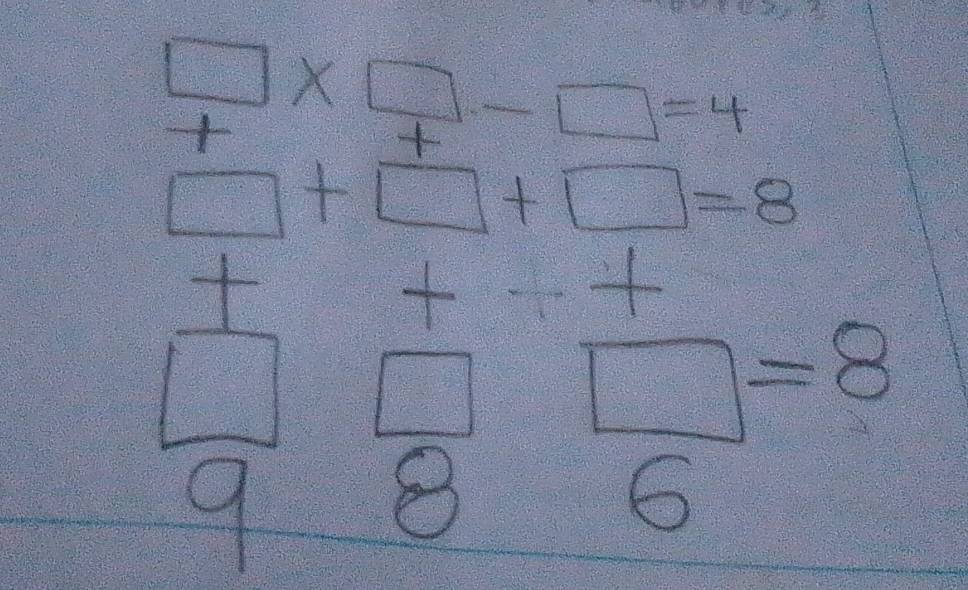 □ × □ - □ = 4
+ +
□ + □ + □ = 8
+ + + +
□ □ □ = 8
9 8 6